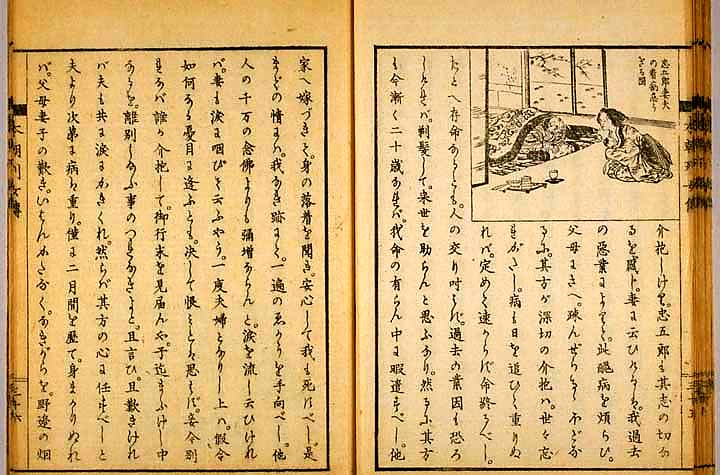 忠五郎妻夫
の看病怠ら
ざる圖
介抱しけるを。忠五郎も其志の切な
るを感じ。妻に云ひけるは。我過去
の惡業によりて。此醜病を煩らひ。
父母にさへ。疎んぜらるゝほどな
るに。其方が深切の介抱ハ。世々忘
れがたし。病も日を追ひて重りぬ
れバ。定めて速からバ命終るべし。
たとへ存命なりとも。人の交り叶はず。過去の業因も恐ろ
しければ。剃髪して。来世を助らんと思ふなり。然るに其方
も今漸く二十歳なれば。我命の有らん中に暇遣すべし。他
家へ嫁づきて。身の落着を聞き。安心して我も死にべし。是
までの情にハ。我なき跡にて。一遍のゑかうを手向べし。他
人の千万の念佛よりも彌増ならんと。涙を流し云ひけれ
バ。妻も涙に咽びて云ふやう。一度夫婦となりし上ハ。假令
如何なる憂目に逢ふとも。決して悔とも思はず。妾今別
れなバ誰か介抱して。御行末を見届んや。子迄まうけし中
なるを。離別し給ふ事のつれなさよと。且言ひ。且歎きけれ
バ夫も共に涙にかきくれ。然らバ其方の心に任すべしと
夫より次第に病ひ重り。僅に二月間を歴て。身まかりぬれ
バ。父母妻子の歎き。いはんかたなく。なきがらを。野邊の烟
本朝列女傳